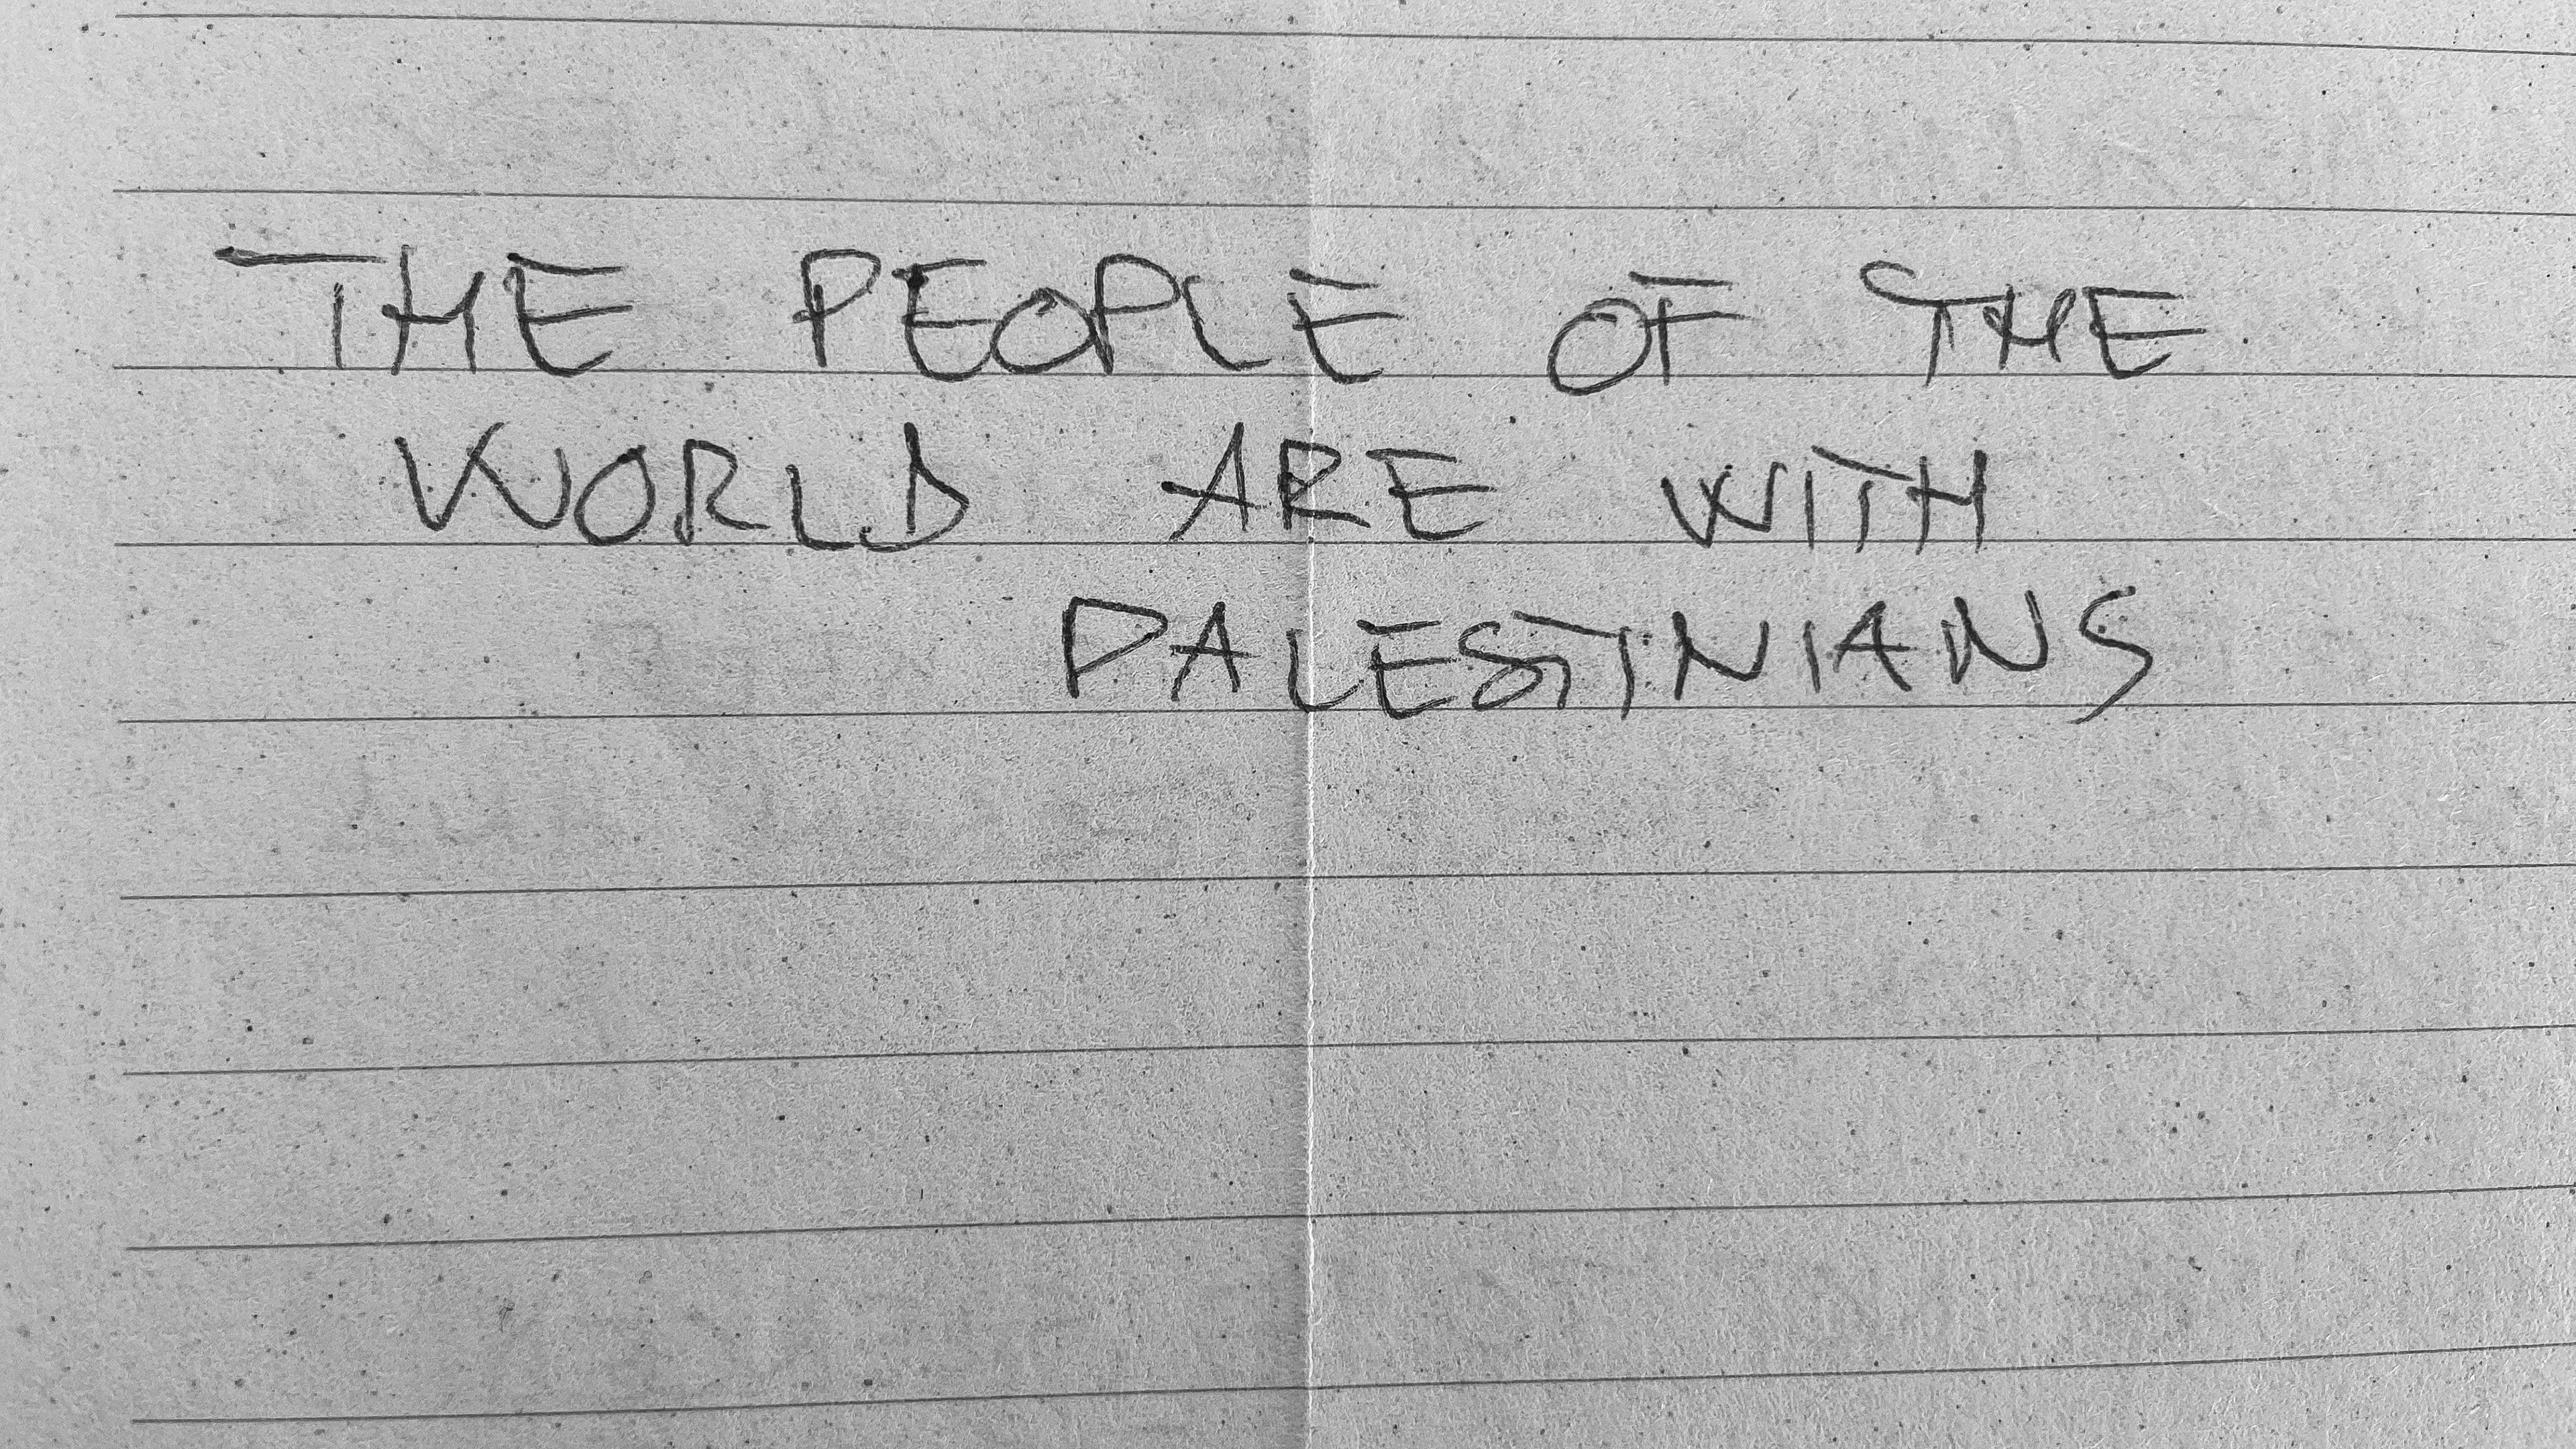 THE PEOPLE OF THE
WORLD ARE WITH
PALESTINIANS